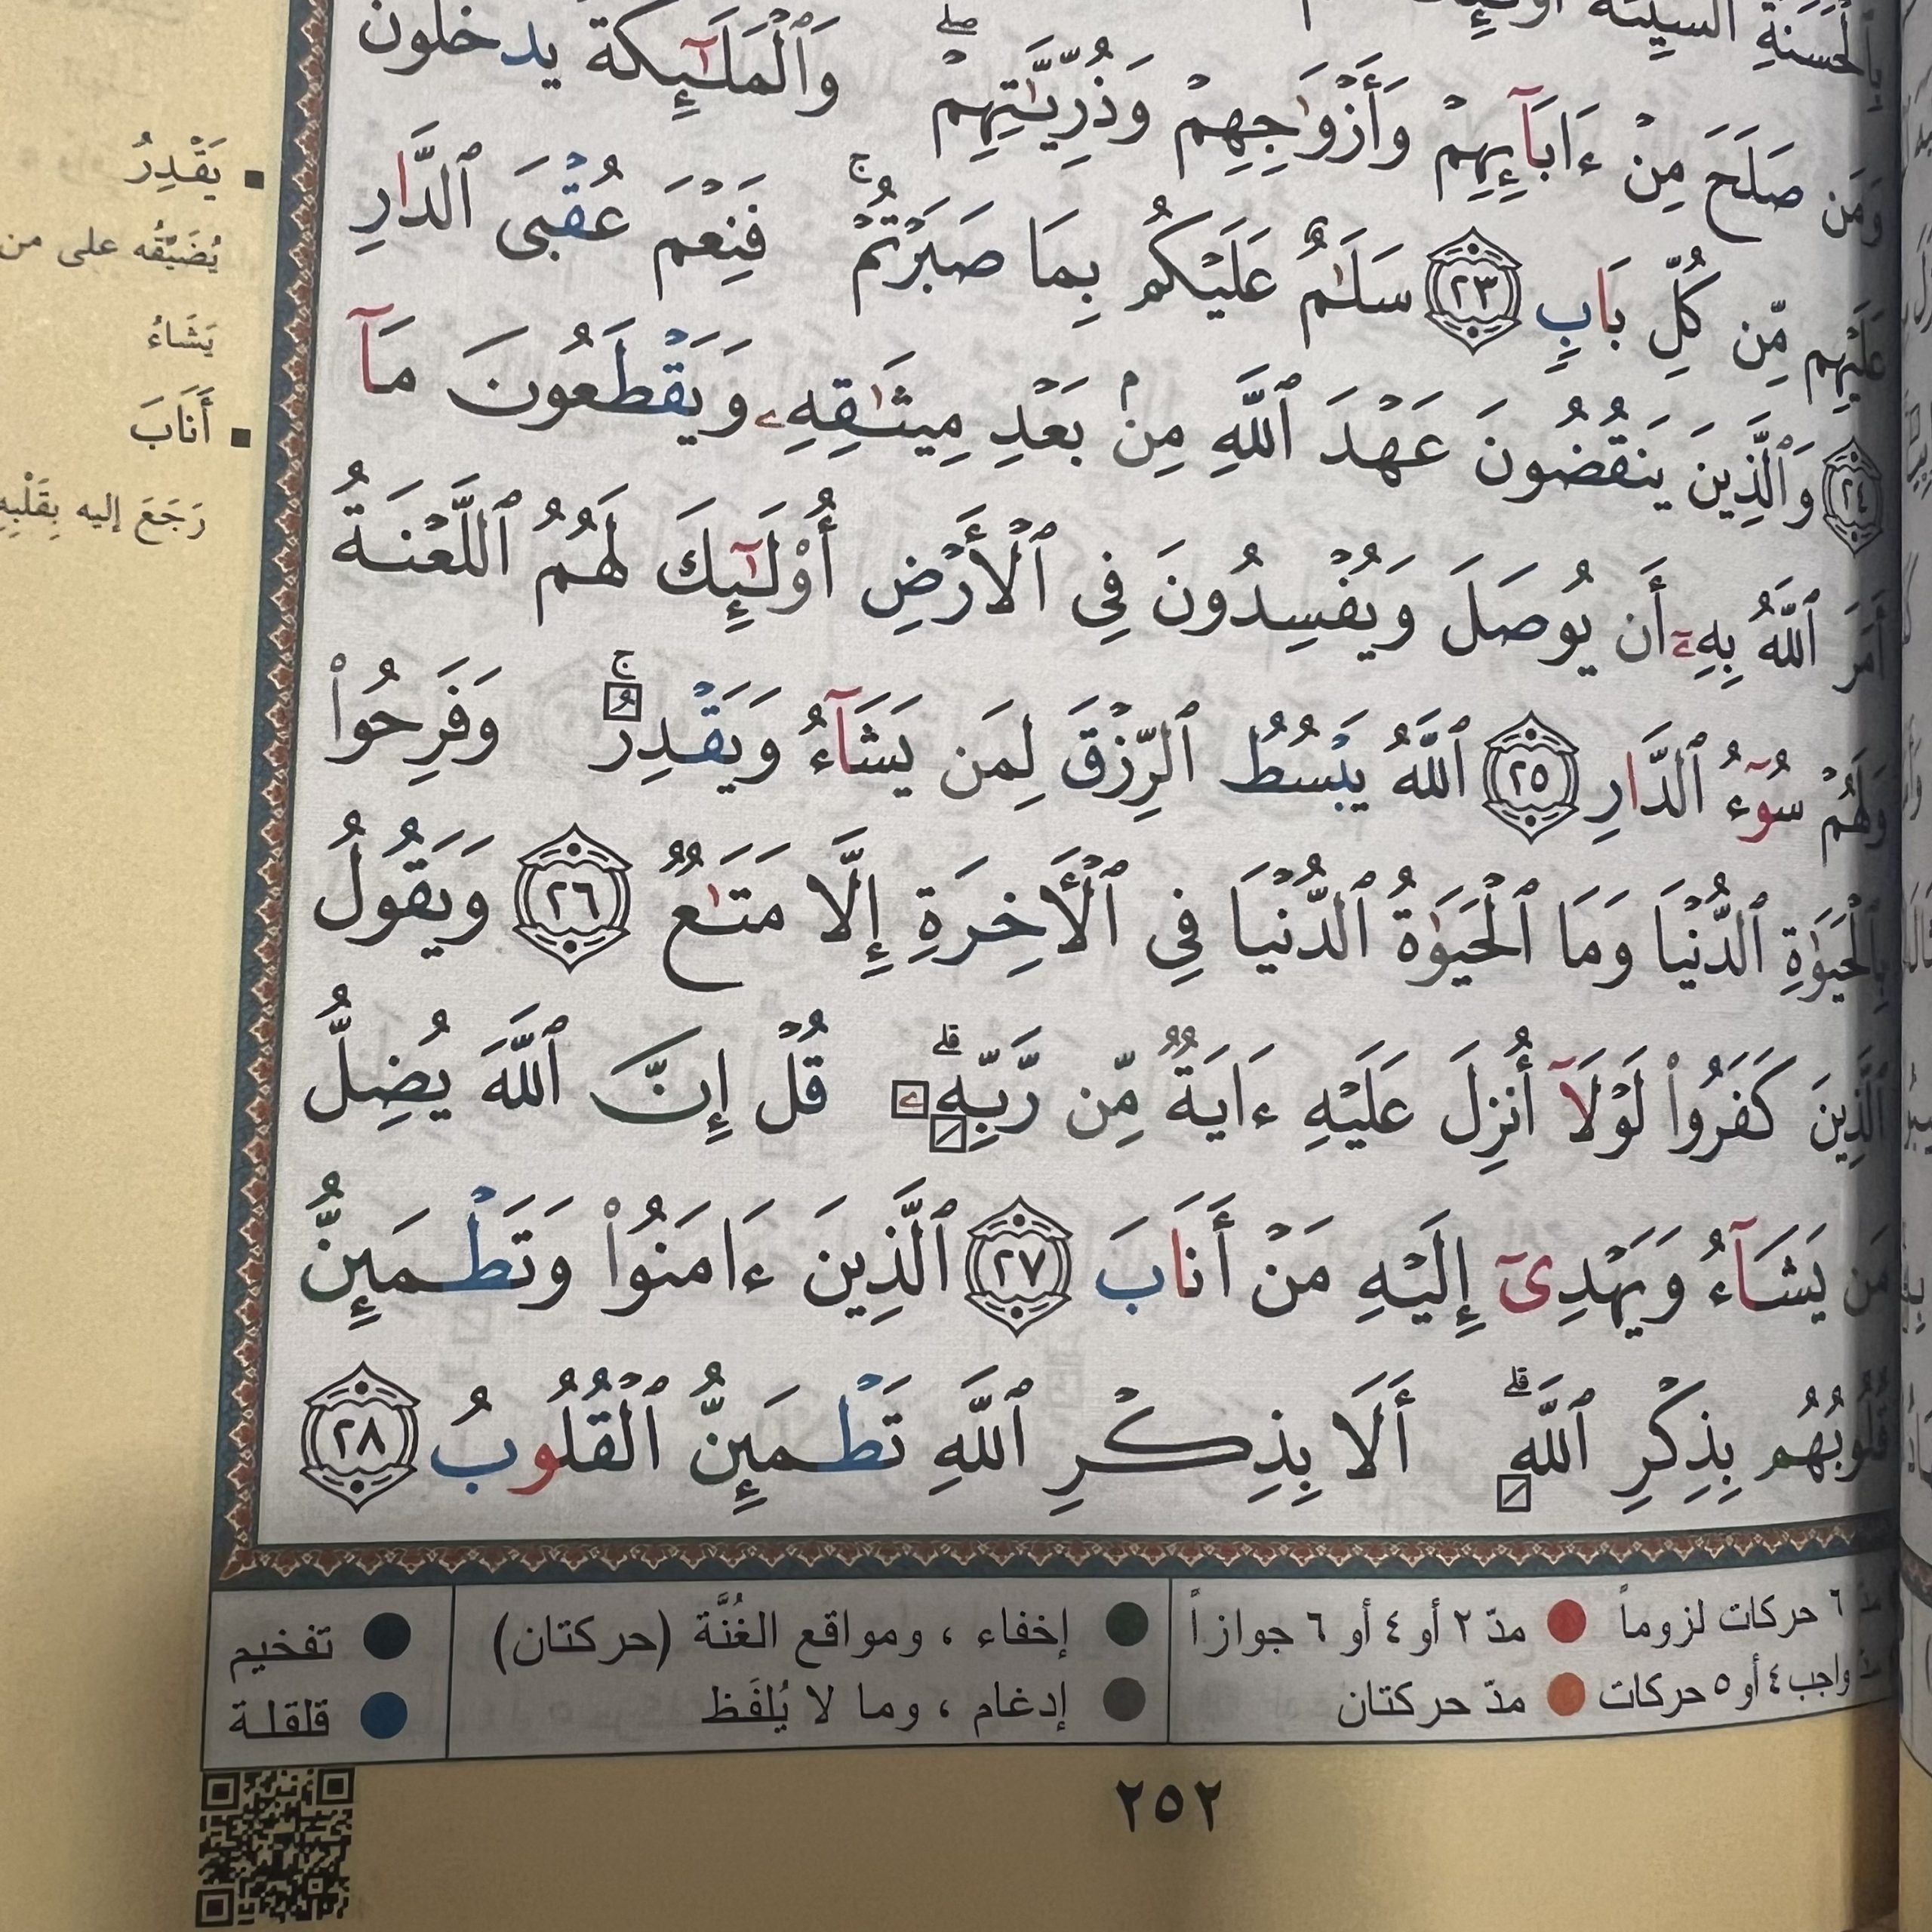 ٱلسَّيِّئَةَ
وَمَن صَلَحَ مِنْ ءَابَآئِهِمْ وَأَزْوَٰجِهِمْ وَذُرِّيَّٰتِهِمْ ۖ وَٱلْمَلَٰٓئِكَةُ يَدْخُلُونَ
عَلَيْهِم مِّن كُلِّ بَابٍ ﴿٢٣﴾ سَلَٰمٌ عَلَيْكُم بِمَا صَبَرْتُمْ ۚ فَنِعْمَ عُقْبَى ٱلدَّارِ
﴿٢٤﴾ وَٱلَّذِينَ يَنقُضُونَ عَهْدَ ٱللَّهِ مِنۢ بَعْدِ مِيثَٰقِهِۦ وَيَقْطَعُونَ مَآ
أَمَرَ ٱللَّهُ بِهِۦٓ أَن يُوصَلَ وَيُفْسِدُونَ فِى ٱلْأَرْضِ أُو۟لَٰٓئِكَ لَهُمُ ٱللَّعْنَةُ
وَلَهُمْ سُوٓءُ ٱلدَّارِ ﴿٢٥﴾ ٱللَّهُ يَبْسُطُ ٱلرِّزْقَ لِمَن يَشَآءُ وَيَقْدِرُ ۚ وَفَرِحُوا۟
بِٱلْحَيَوٰةِ ٱلدُّنْيَا وَمَا ٱلْحَيَوٰةُ ٱلدُّنْيَا فِى ٱلْأَخِرَةِ إِلَّا مَتَٰعٌ ﴿٢٦﴾ وَيَقُولُ
ٱلَّذِينَ كَفَرُوا۟ لَوْلَآ أُنزِلَ عَلَيْهِ ءَايَةٌ مِّن رَّبِّهِۦ ۗ قُلْ إِنَّ ٱللَّهَ يُضِلُّ
مَن يَشَآءُ وَيَهْدِىٓ إِلَيْهِ مَنْ أَنَابَ ﴿٢٧﴾ ٱلَّذِينَ ءَامَنُوا۟ وَتَطْمَئِنُّ
قُلُوبُهُم بِذِكْرِ ٱللَّهِ ۗ أَلَا بِذِكْرِ ٱللَّهِ تَطْمَئِنُّ ٱلْقُلُوبُ ﴿٢٨﴾
■ يَقْدِرُ
يُضَيِّقُه على من
يَشَاءُ
■ أَنَابَ
رَجَعَ إليه بِقَلْبِهِ
٦ حركات لزوماً ● مدّ ٢ أو ٤ أو ٦ جوازاً
واجب ٤ أو ٥ حركات ● مدّ حركتان
● إخفاء ، ومواقع الغُنَّة (حركتان)
● إدغام ، وما لا يُلفَظ
● تفخيم
● قلقلة
٢٥٢